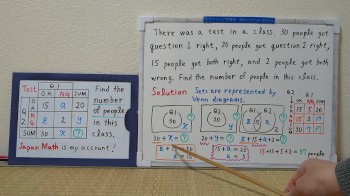 There was a test in a class. 30 people got
question 1 right, 20 people got question 2 right,
15 people got both right, and 2 people got both
wrong. Find the number of people in this class.
Solution Sets are represented by
Venn diagrams.
Q1
30
2
Q1 Q2
2
30 + x = ?
20 + y = ?
15 + x = 30
x = 15
15 + a = 20
a = 5
Q1
Q2
15 5 20
15 2 17
30
15+15+5+2=37 people
Test Q1
OK NG SUM
Q2
OK 15 a 20
NG z 2 y
SUM 30 x ?
Find the
number of
people in
this
class.
Japan Math is my account!